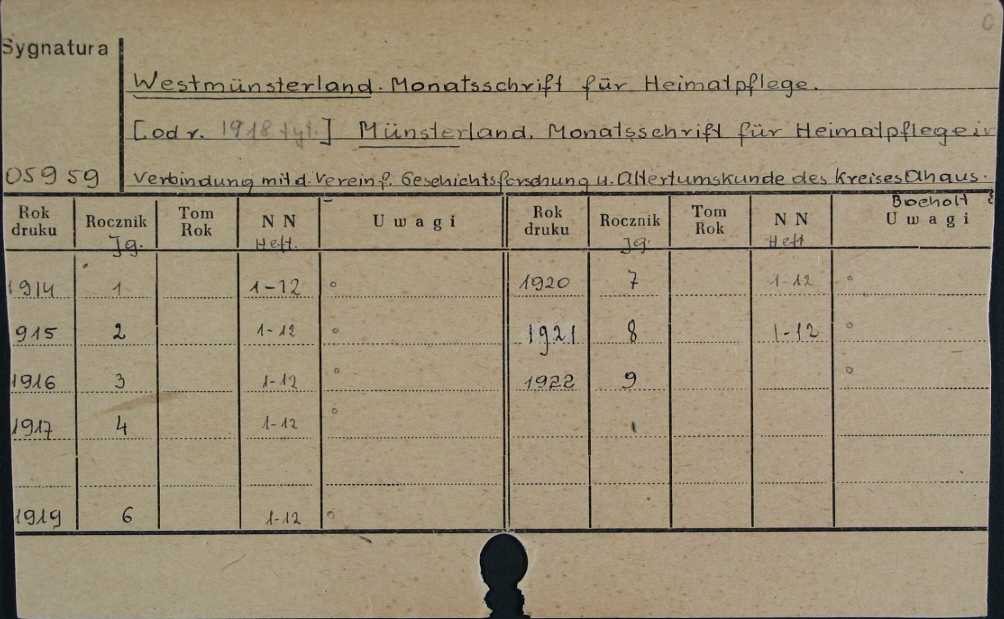 Sygnatura
Westmünsterland. Monatsschrift für Heimatpflege.
[od r. 1918 tyt.] Münsterland. Monatsschrift für Heimatpflege in
05959 Verbindung mit d. Verein f. Geschichtsforschung u. Altertumskunde des Kreises Ahaus.
Bocholt
Rok druku Rocznik Tom Rok N N Uwagi Rok druku Rocznik Tom Rok N N Uwagi
Jg. Heft. Jg. Heft
1914 1 1-12 ° 1920 7 1-12 °
915 2 1-12 ° 1921 8 1-12 °
1916 3 1-12 ° 1922 9 °
1917 4 1-12 °
1919 6 1-12 °